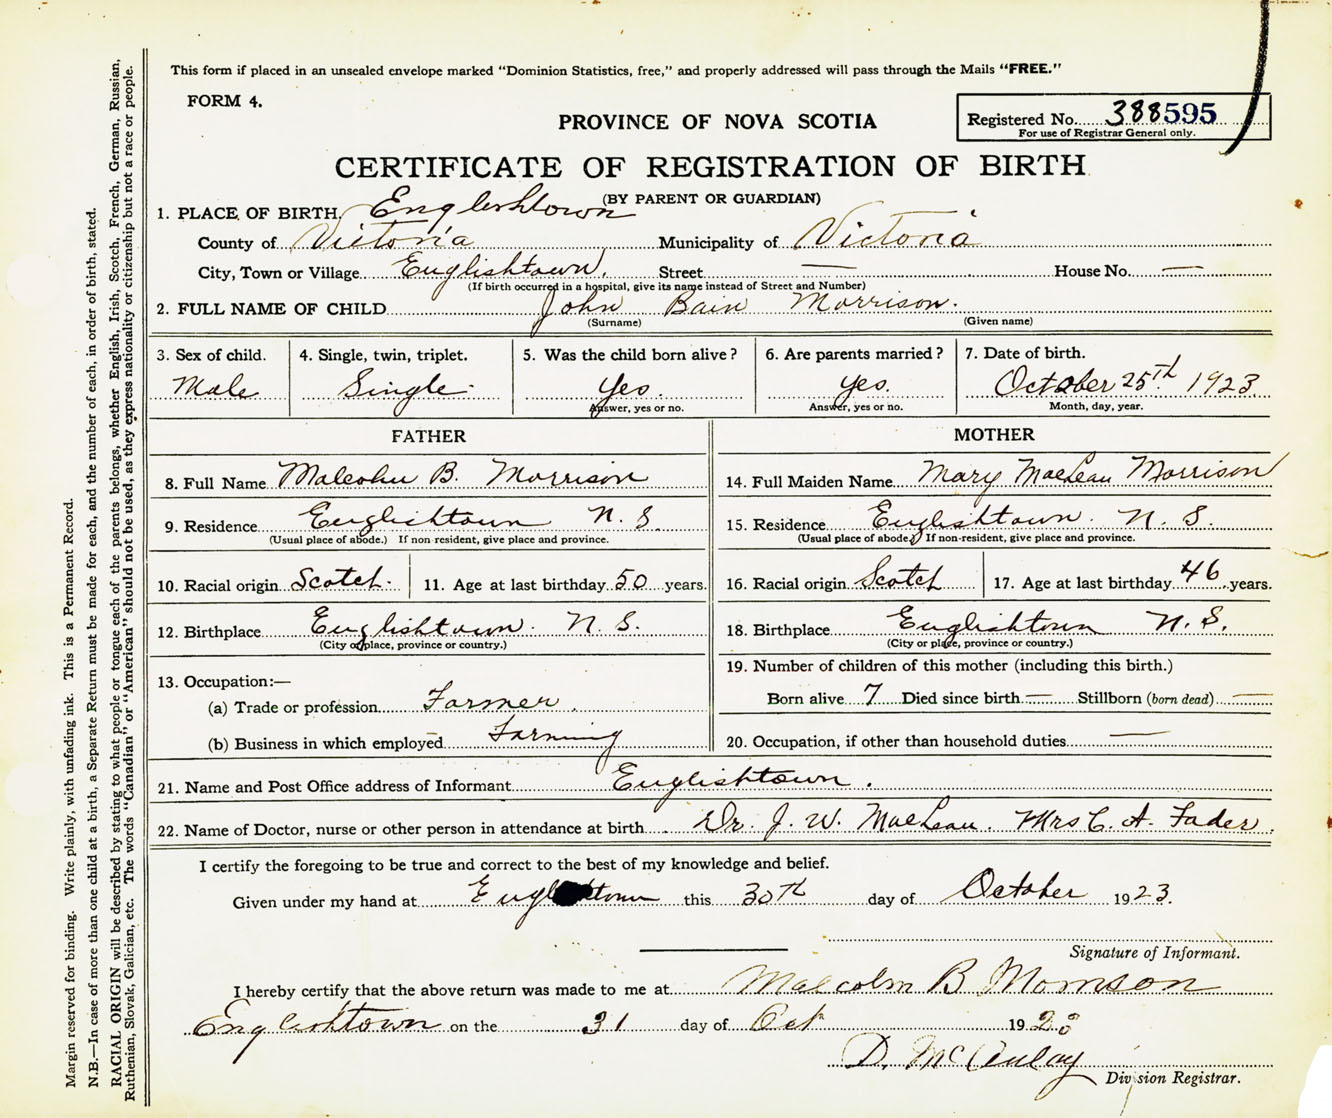 This form if placed in an unsealed envelope marked "Dominion Statistics, free," and properly addressed will pass through the Mails "FREE."
FORM 4.
PROVINCE OF NOVA SCOTIA
Registered No. 388595
For use of Registrar General only.
CERTIFICATE OF REGISTRATION OF BIRTH
(BY PARENT OR GUARDIAN)
1. PLACE OF BIRTH. Englishtown
County of Victoria Municipality of Victoria
City, Town or Village Englishtown. Street — House No. —
(If birth occurred in a hospital, give its name instead of Street and Number)
2. FULL NAME OF CHILD John Bain Morrison.
(Surname) (Given name)
3. Sex of child. 4. Single, twin, triplet. 5. Was the child born alive? 6. Are parents married? 7. Date of birth.
Male Single Yes. Yes. October 25th 1923.
Answer, yes or no. Answer, yes or no. Month, day, year.
FATHER
8. Full Name Malcolm B. Morrison
9. Residence Englishtown N. S.
(Usual place of abode.) If non-resident, give place and province.
10. Racial origin Scotch. 11. Age at last birthday 50 years.
12. Birthplace Englishtown. N. S.
(City or place, province or country.)
13. Occupation:—
(a) Trade or profession Farmer.
(b) Business in which employed Farming
MOTHER
14. Full Maiden Name Mary MacLean Morrison
15. Residence Englishtown. N. S.
(Usual place of abode.) If non-resident, give place and province.
16. Racial origin Scotch 17. Age at last birthday 46 years.
18. Birthplace Englishtown N. S.
(City or place, province or country.)
19. Number of children of this mother (including this birth.)
Born alive 7 Died since birth — Stillborn (born dead) —
20. Occupation, if other than household duties —
21. Name and Post Office address of Informant Englishtown.
22. Name of Doctor, nurse or other person in attendance at birth Dr. J. W. MacLean. Mrs C. A. Fader.
I certify the foregoing to be true and correct to the best of my knowledge and belief.
Given under my hand at Englishtown this 30th day of October 1923.
Signature of Informant.
I hereby certify that the above return was made to me at Malcolm B Morrison
Englishtown on the 31 day of Oct 1923
D. McAulay
Division Registrar.
Margin reserved for binding. Write plainly, with unfading ink. This is a Permanent Record.
N.B.—In case of more than one child at a birth, a Separate Return must be made for each, and the number of each, in order of birth, stated.
RACIAL ORIGIN will be described by stating to what people or tongue each of the parents belongs, whether English, Irish, Scotch, French, German, Russian,
Ruthenian, Slovak, Galician, etc. The words "Canadian" or "American" should not be used, as they express nationality or citizenship but not a race or people.